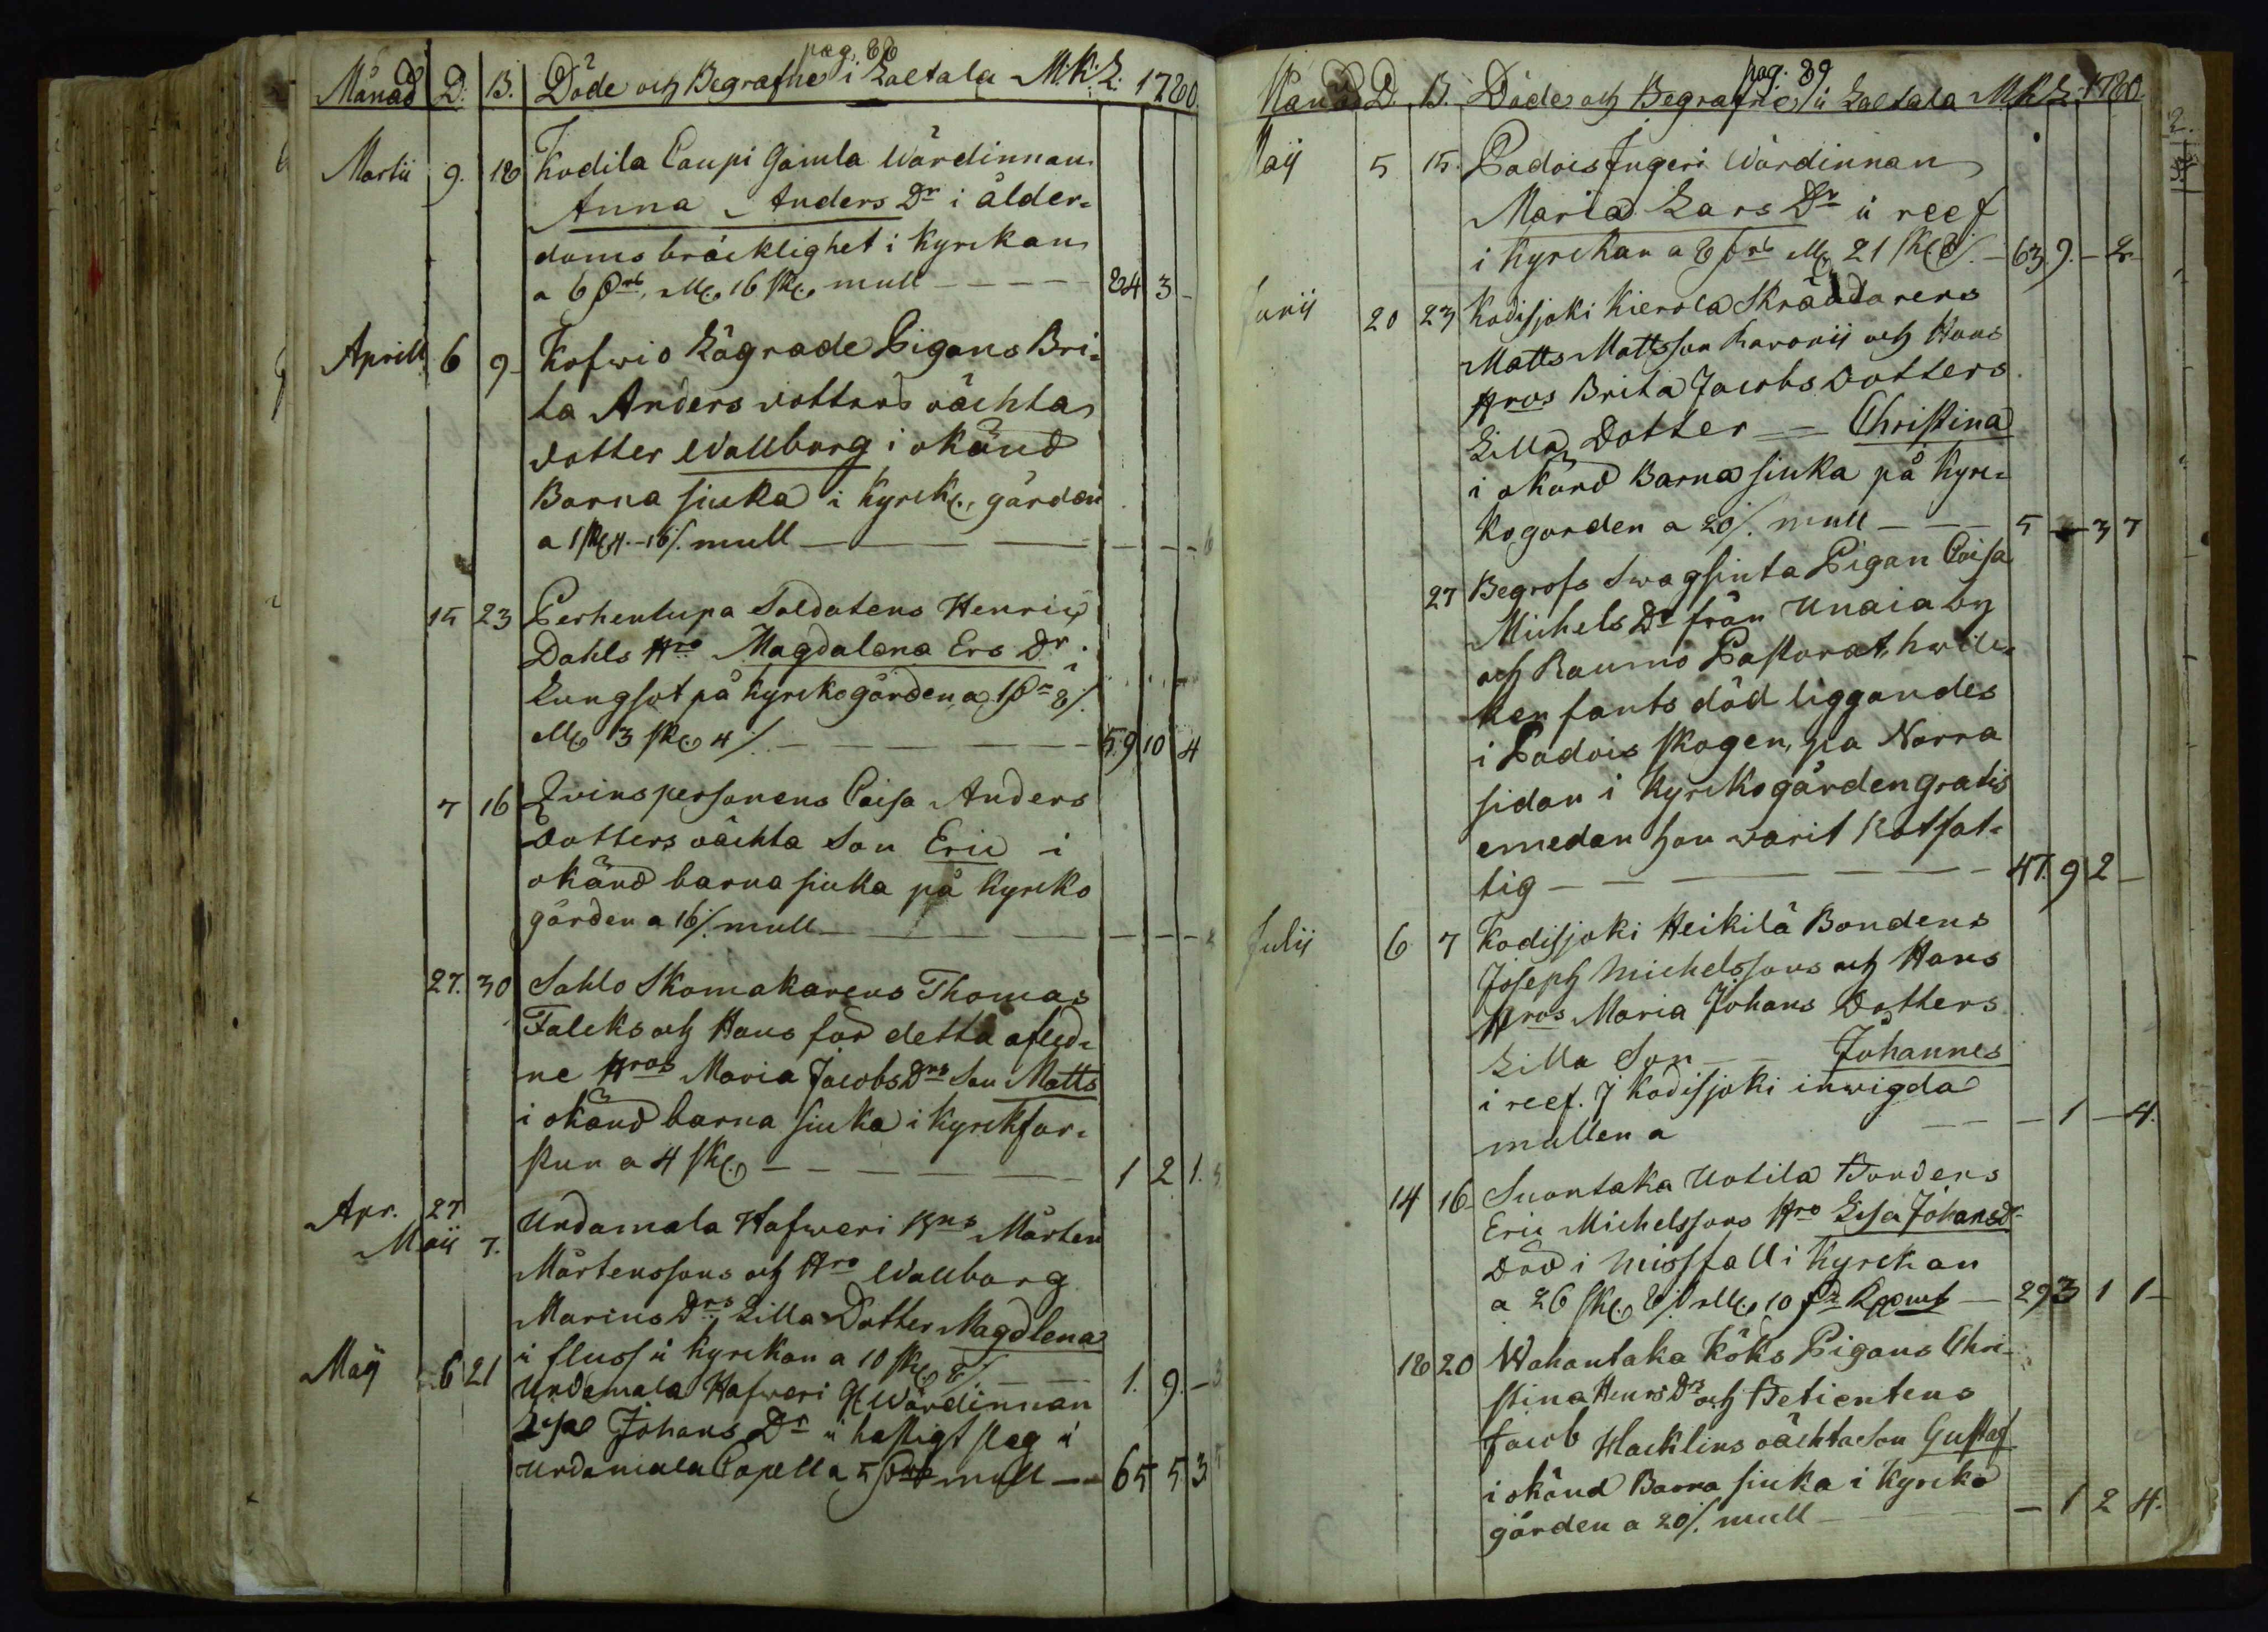 pag. 88
Månad D. B. Döde och Begrafne i Laetala M.K.L. 1780.
Martii 9. 18 Kodila Caupi Gamla Wärdinnan
Anna Anders Dr i ålder-
doms bräcklighet i Kyrckan
a 6 mull 84 3 -
Aprill 6 9 Kofwio Lägrade Pigans Bri-
ta Anders dotters oächta
dotter Wallborg i okänd
Barna siuka i Kyrck gården
a mull - - - 6
15 23 Perhentupa Soldatens Henric
Dahls Hro Magdalena Ers Dr i
Lungsot på Kyrckogården a
3 sk 4 59 10 4
7 16 personens Caisa Anders
Dotters oächta Son Eric i
okänd barna siuka på Kyrcko
gården a 16/. mull - - -
27. 30 Sahlo Skomakarens Thomas
Falcks och Hans for detta afled-
ne Hros Maria Jacobs Drs Son Matts
i okänd barna siuka i Kyrckfar-
stun a 4 sk 1 2 1. 5
Apr. 27
Maii 7. Undamala Hafweri Bns Mårten
Mårtenssons och Hro Wallborg
Marcus Drs Lilla Dotter Magdlena
i fluss i Kyrckan a 10 sk 8/. 1. 9. - 3
Maij 6 21 Undamala Hafweri Gl Wärdinnan
Lisa Johans Dr i hastigt slag i
Undamala Capell a 5 mull 65 5 3
pag. 89
Månad D. B. Döde och Begrafne i Laetala M.K.L. 1780
Maij 5 15. Padois Ingeri Wärdinnan
Maria Lars Dr i reef
i Kyrckan a 8 21 sk 8/. 63 9. - 2
Junij 20 23 Kodisjoki Kierola Skräddarens
Matts Mattsson och Hans
Hros Brita Jacobs Dotters
Lilla Dotter Christina
i okänd Barna siuka på Kyrc-
kogården a 20/. mull 5 - 3 7
27 Begrofs Swagsinta Pigan Caisa
Michels Dr från Unaia by
och Raumo Pastorat, hwil-
ken fants död liggandes
i Padois skogen, på Norra
sidan i Kyrckogården gratis
emedan hon warit Rotfat-
tig 47. 9 2 -
Julij 6 7 Kodisjoki Heikilä Bondens
Joseph Michelssons och Hans
Hros Maria Johans Dotters
Lilla Son Johannes
i reef. I Kodisjoki inwigda
mullen a - 1 - 4.
14 16 Suontaka Uotila Bondens
Eric Michelssons Hro Lisa Johansd
Död i Missfall i Kyrckan
a 26 sk 8/. 10 293 1 1 -
18 20 Wahantaka Köks Pigans Chri-
stina Henrs Drs och Betientens
Jacob Hacklins oächta Son Gustaf
i okänd Barna siuka i Kyrcko
gården a 20/. mull - 1 2 4.